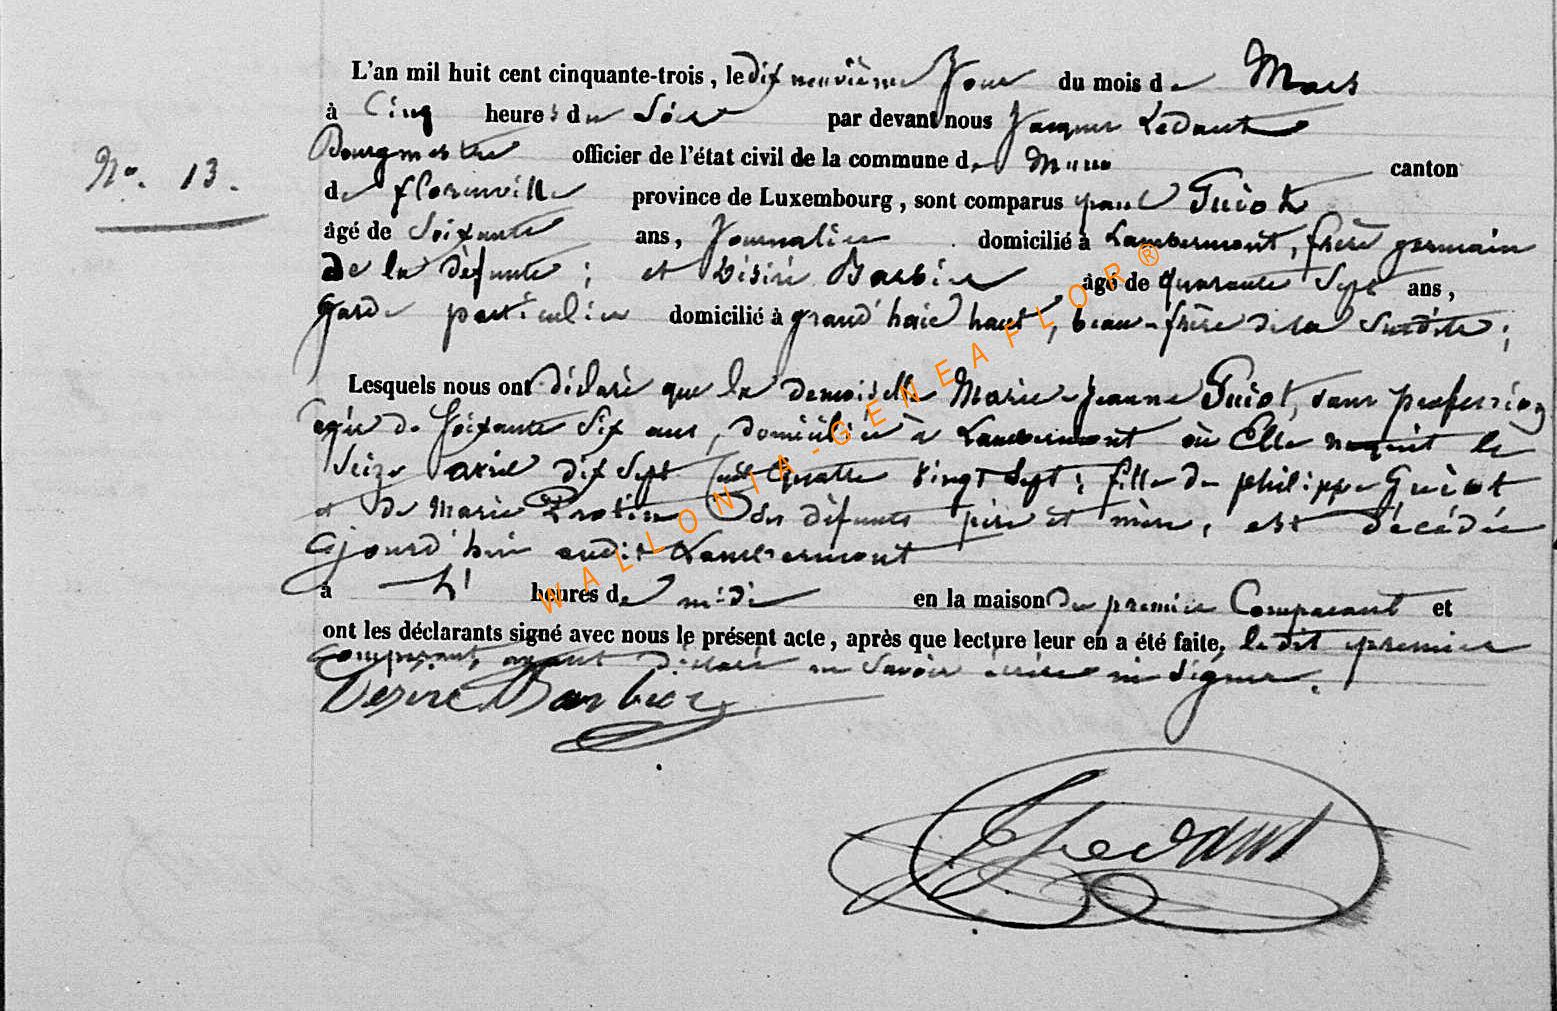 L'an mil huit cent cinquante-trois, le dix neuvième Jour du mois de Mars
à Cinq heures du Soir par devant nous Jacques Lédant
Bourgmestre officier de l'état civil de la commune de Muno canton
No. 13.
de florenville province de Luxembourg, sont comparus paul Guiot
âgé de Soixante ans, Journalier domicilié à Lambermont, frère germain
de la défunte; et Désiré Barbier âgé de quarante Sept ans,
garde particulier domicilié à grand'haie haut, beau-frère de la Susdite;
Lesquels nous ont déclaré que la demoiselle Marie-Jeanne Guiot, sans profession
agée de Soixante Six ans, domiciliée à Lambermont où Elle naquit le
Seize avril dix Sept Cent Quatre Vingt Sept; fille de philippe Guiot
et de Marie Protin des défunts père et mère, est décédée
ajourd'hui audit Lambermont
à heures de midi en la maison du premier Comparant et
ont les déclarants signé avec nous le présent acte, après que lecture leur en a été faite, le dit premier
comparant, ayant déclaré ne Savoir écrire ni Signer.
Désiré Barbier
Lédant
WALLONIA-GENEAFLOR®